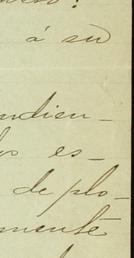 á su
ndien-
os es-
de plo-
mente